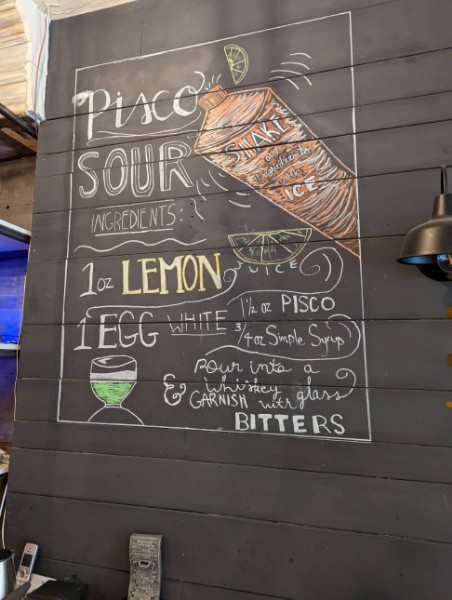 Pisco
SOUR
SHAKE
all
ingredients
with
ICE
INGREDIENTS:
1oz LEMON JUICE
1 EGG WHITE
1 1/2 oz PISCO
3/4 oz Simple Syrup
Pour into a
whiskey glass
& GARNISH with
BITTERS